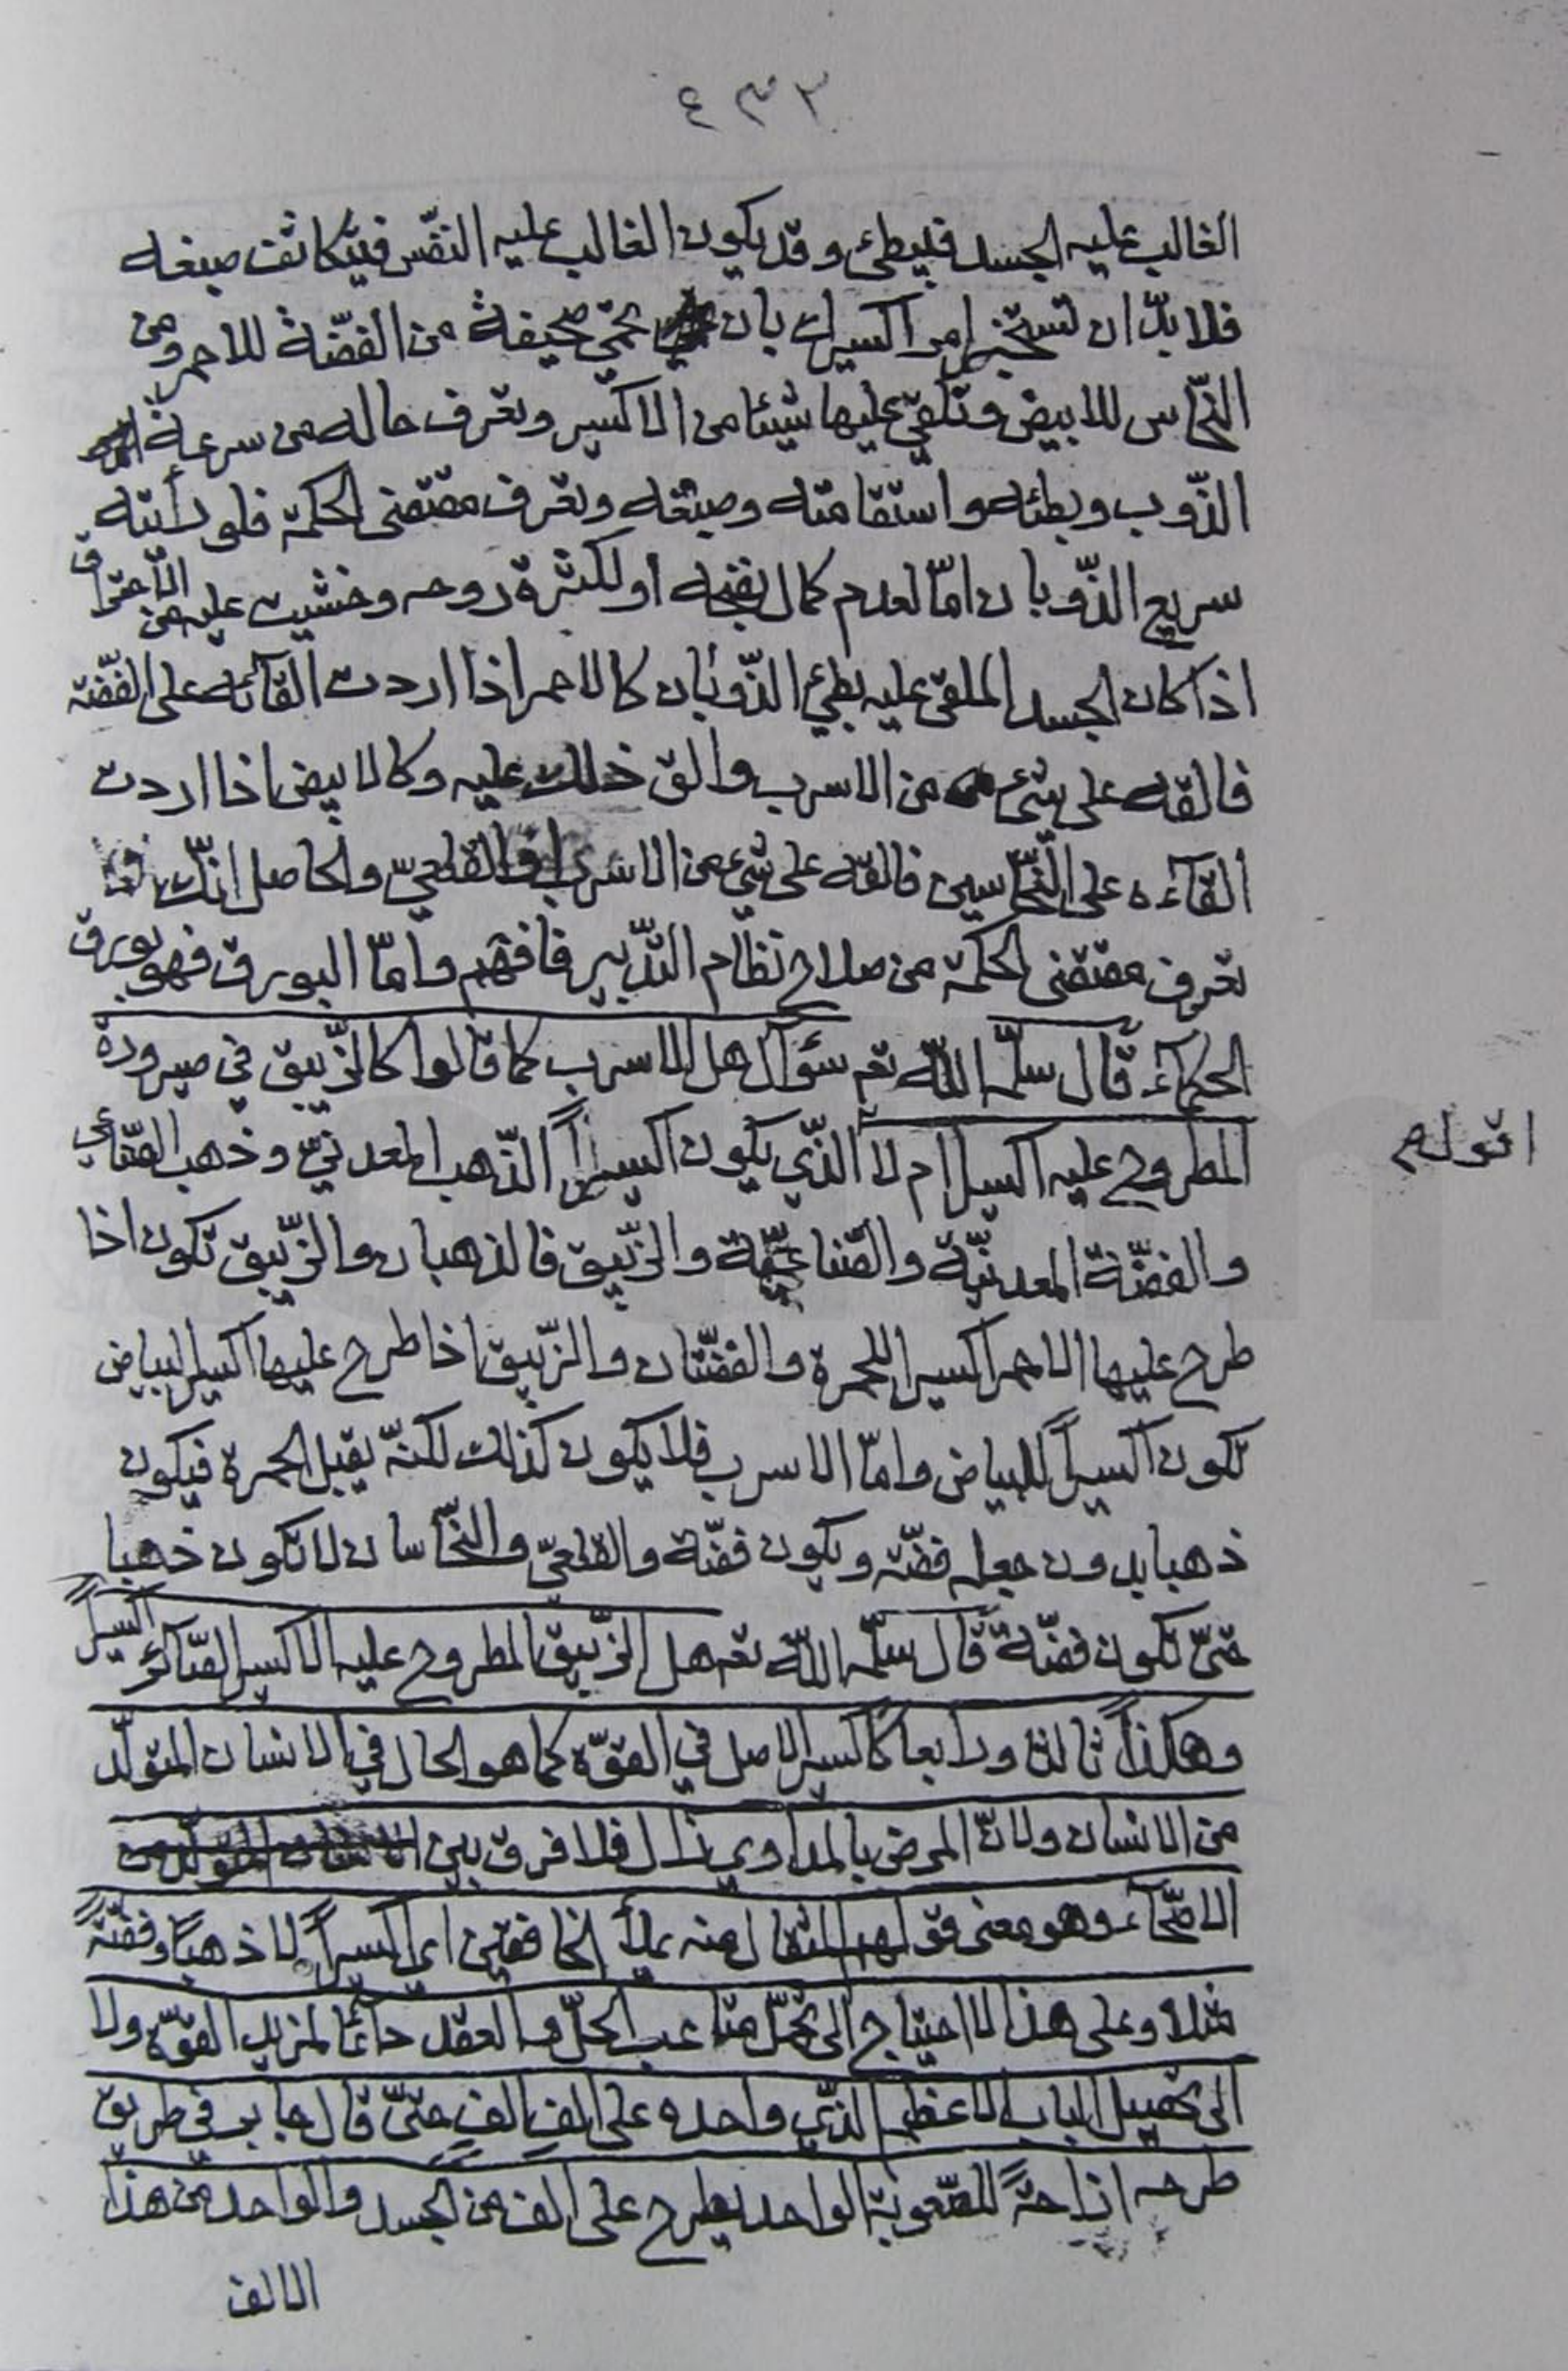 ٤٣٣
الغالب عليه الجسد فيبطئ وقد يكون الغالب عليه النفس فيتكاثف صبغه
فلا بدّ ان تستخبر امر اكسيرك بان تحمّي صحيفة من الفضّة للاحمر ومن
النّحاس للابيض وتلقي عليها شيئا من الاكسير وتعرف حاله من سرعة
الذّوب وبطئه واستقامته وصبغه وتعرف مقتضى الحكمة فلو رأيته
سريع الذّوبان امّا لعدم كمال نضجه او لكثرة روحه وخشيت عليه من الاحتراق
اذا كان الجسد الملقى عليه بطئ الذّوبان كالاحمر اذا اردت القآئه على الفضّة
فالقه على شئ من الاسرب والق ذلك عليه وكالابيض اذا اردت
القآءه على النّحاسين فالقه على شئ من الاسرب والقلعيّ والحاصل انّك
تعرف مقتضى الحكمة من صلاح نظام التّدبير فافهم وامّا البورق فهو بورق
الحكمآء قال سلّمه اللّه تعم سؤال هل الاسرب كما قالوا كالزّيبق في صيرورة
المطروح عليه اكسيرا ام لا الّذي يكون اكسيراً الذّهب المعدنيّ وذهب الصّناعي
اقول
والفضّة المعدنيّة والصّناعيّة والزّيبق فالذهبان والزّيبق تكون اذا
طرح عليها الاحمر اكسيرا للحمرة والفضّتان والزّيبق اذا طرح عليها اكسير البياض
تكون اكسيراً للبياض وامّا الاسرب فلا يكون كذلك لكنّه يقبل الحمرة فيكون
ذهبا بدون جعله فضّة ويكون فضّة والقلعيّ والنّحاسان لا تكون ذهبا
حتّى تكون فضّة قال سلّمه اللّه تعم هل الزّيبق المطروح عليه الاكسير الصّآئر اكسيراً
وهكذا ثالثا ورابعا كاكسير الاصل في القوّة كما هو الحال في الانسان المتولّد
من الانسان ولانّ المرض بالمداوي زال فلا فرق بين
الاصحّآء وهو معنى قولهم المثقال منه يملأ الخافقين اي اكسيراً لا ذهباً وفضّةً
مثلا وعلى هذا لا احتياج الى تحمّل متاعب الحلّ والعقد دائما لمزيد القوّة ولا
الى تحصيل الباب الاعظم الّذي واحده على الف الف حتّى قال جابر في طريق
طرحه ازاحةً للصّعوبة الواحد يطرح على الف من الجسد والواحد من هذا
الالف